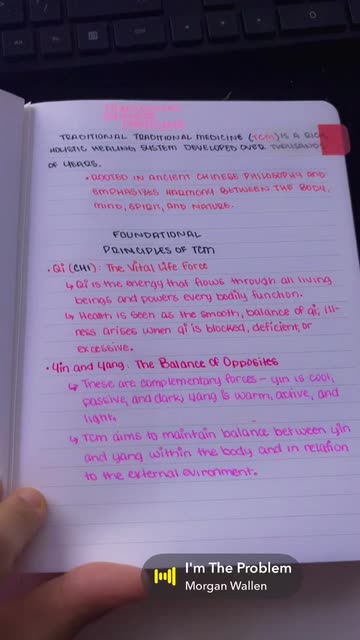 TRADITIONAL
CHINESE
MEDICINE
TRADITIONAL TRADITIONAL MEDICINE (TCM) IS A RICH,
HOLISTIC HEALING SYSTEM DEVELOPED OVER THOUSANDS
OF YEARS.
• ROOTED IN ANCIENT CHINESE PHILOSOPHY AND
EMPHASISES HARMONY BETWEEN THE BODY,
MIND, SPIRIT, AND NATURE.
FOUNDATIONAL
PRINCIPLES OF TCM
• Qi (CHI): The Vital Life Force
↳ Qi is the energy that flows through all living
beings and powers every bodily function.
↳ Health is seen as the smooth, balance of qi; ill-
ness arises when qi is blocked, deficient, or
excessive.
• Yin and Yang: The Balance of Opposites
↳ These are complementary forces – yin is cool,
passive, and dark; yang is warm, active, and
light.
↳ TCM aims to maintain balance between yin
and yang within the body and in relation
to the external evironment.
I'm The Problem
Morgan Wallen